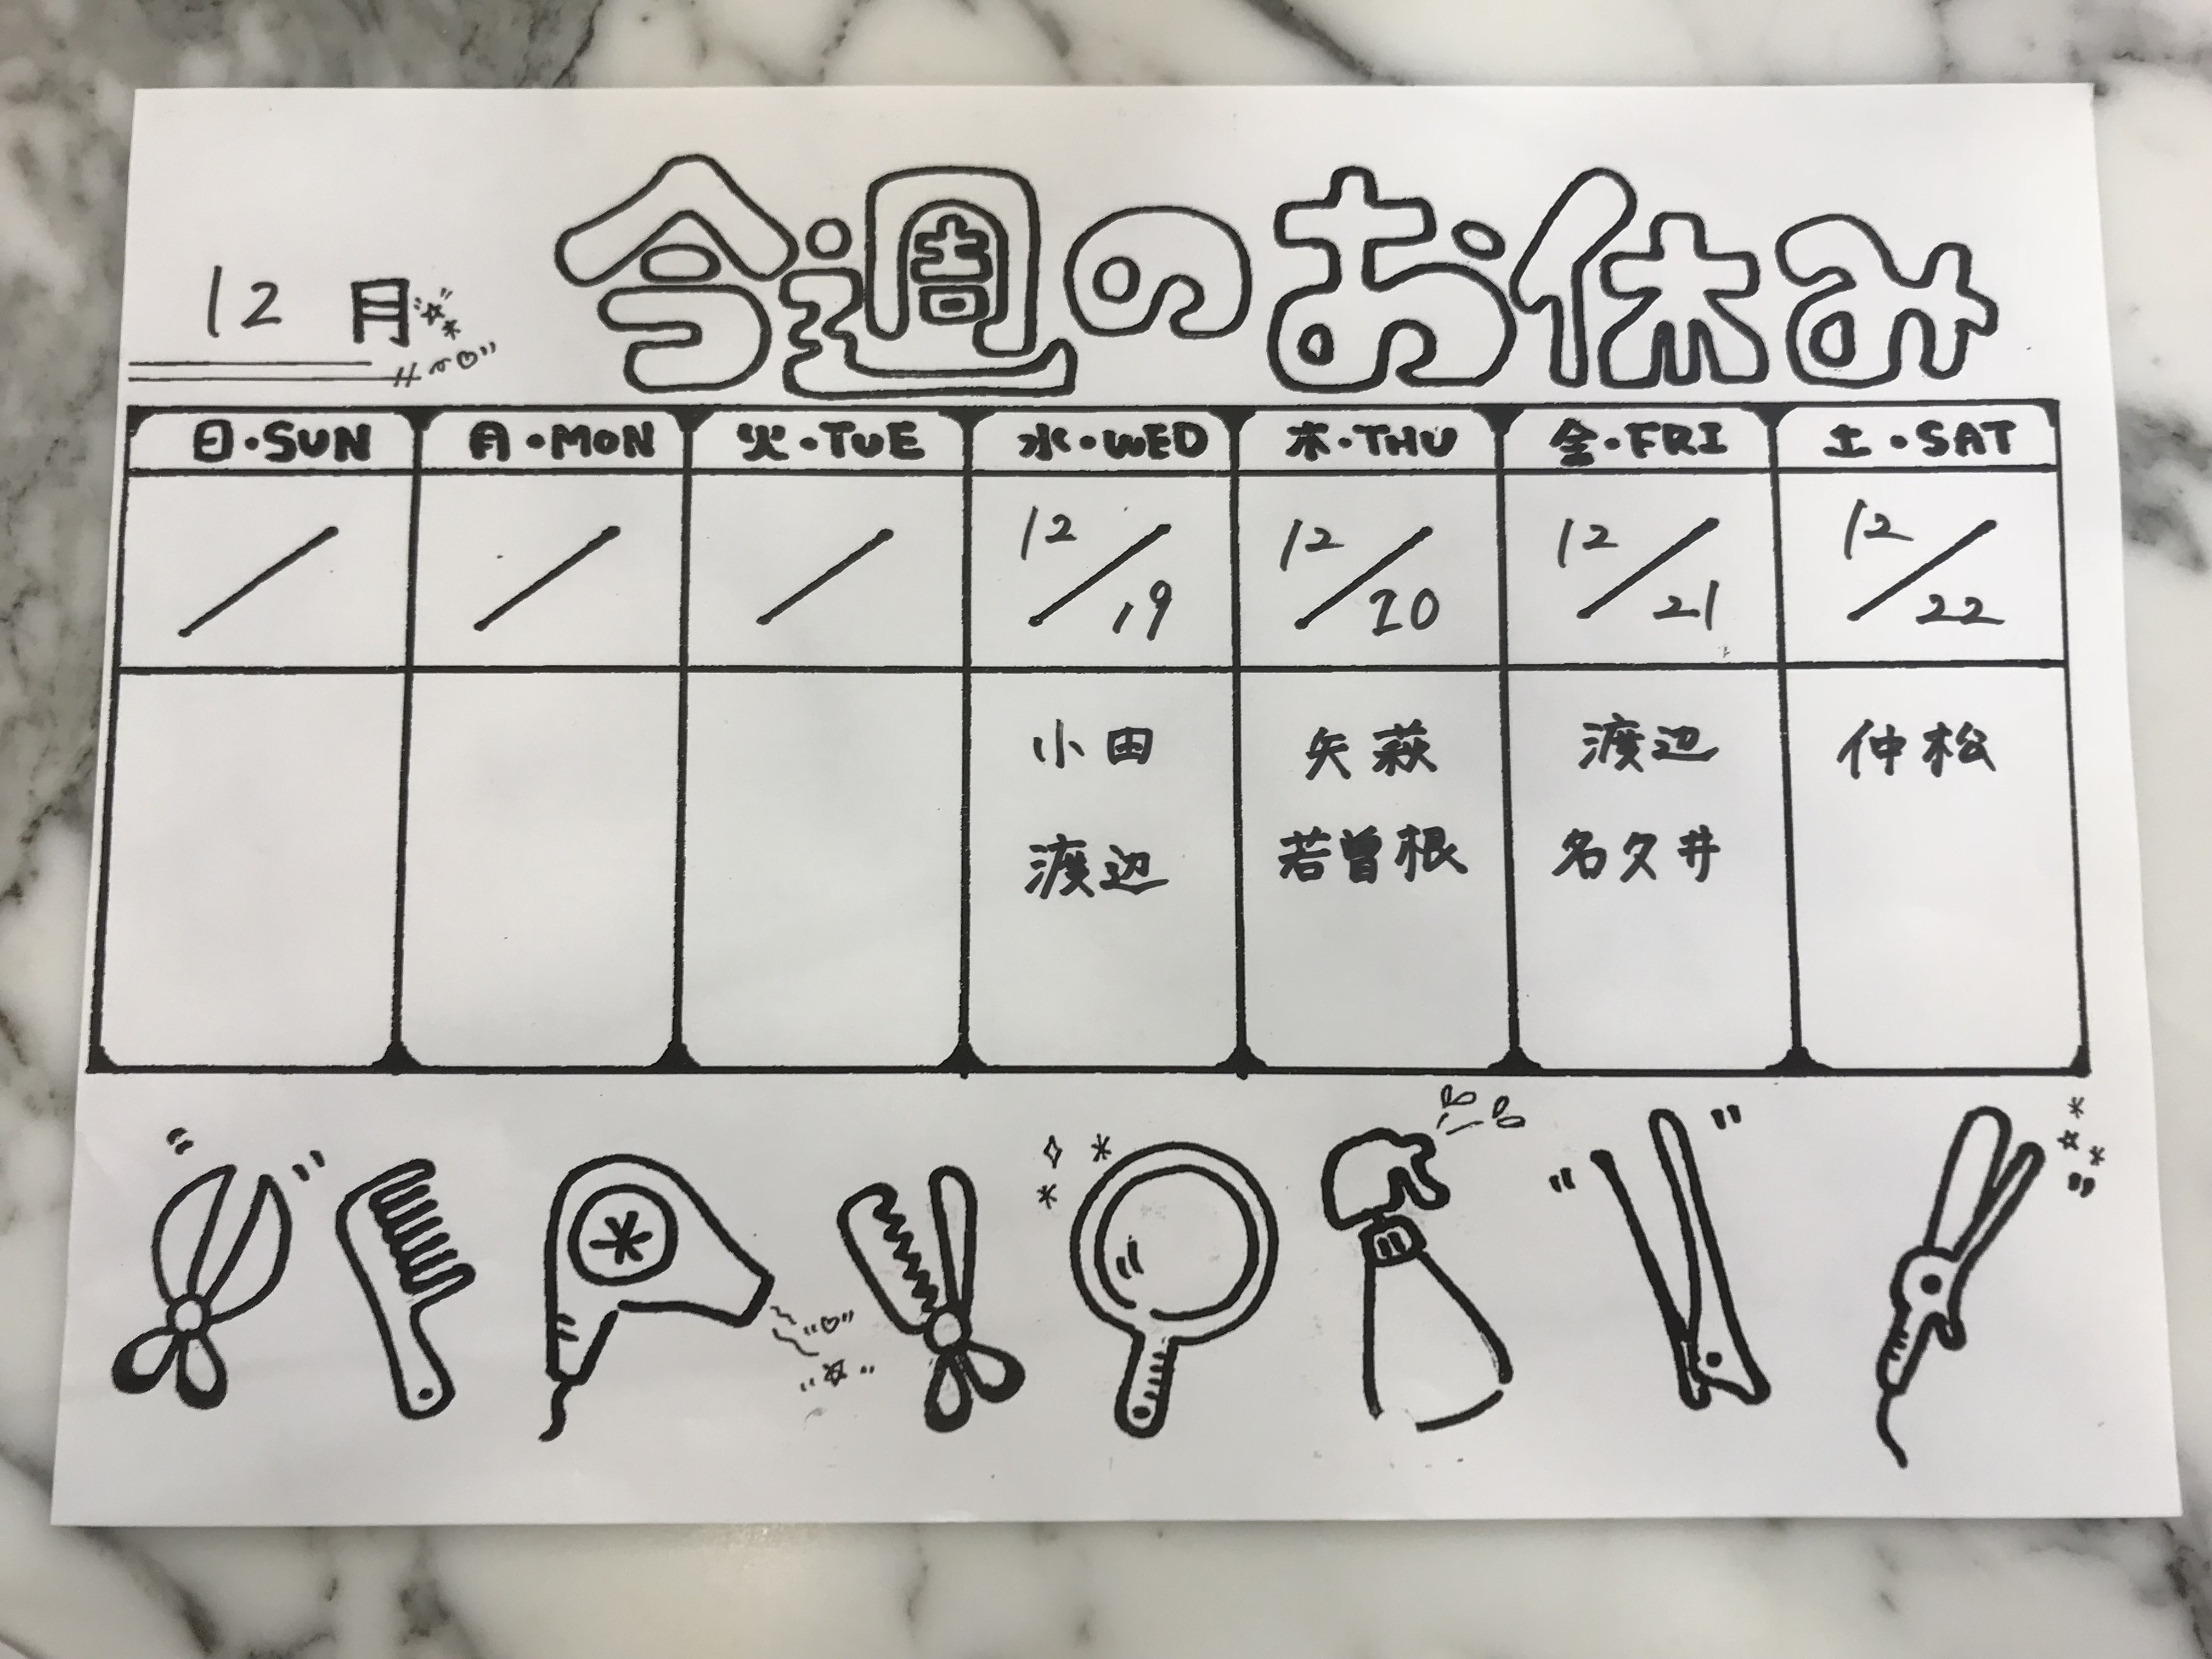 12 月
今週のお休み
日・SUN 月・MON 火・TUE 水・WED 木・THU 金・FRI 土・SAT
/ / / 12/19 12/20 12/21 12/22
小田 矢萩 渡辺 仲松
渡辺 若曽根 名久井